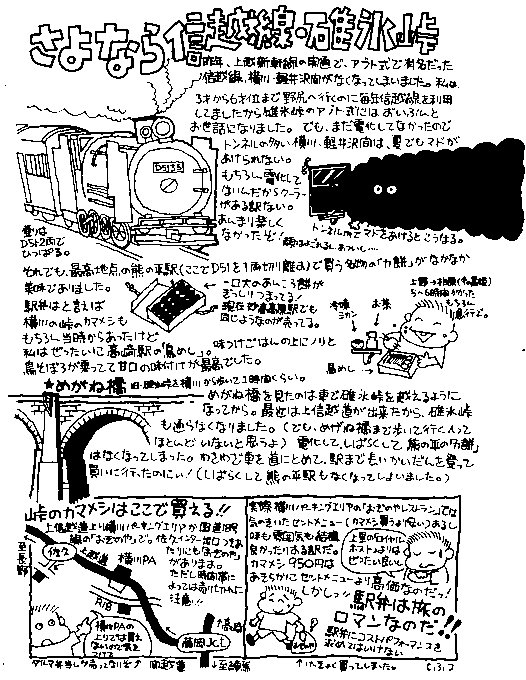 さよなら信越線・碓氷峠
昨年、上越新幹線の関連で、アプト式で有名だった
信越線、横川・軽井沢間がなくなってしまいました。私は
3才から6才位まで野尻へ行くのに毎年信越線を利用
してましたから碓氷峠のアプト式にはずいぶんと
お世話になりました。でも、まだ電化してなかったので
トンネルの多い横川・軽井沢間は、夏でもマドが
あけられない。
もちろん電化して
ないんだからクーラー
がある訳ない。
あんまり楽しく
なかったぞ!
D5135
登りは
D51 2両で
ひっぱる。
トンネル内でマドをあけるとこうなる。
それでも、最高地点の熊の平駅(ここでD51を1両切り離す)で買う名物の「力餅」がなかなか
美味でありました。
一口大のあんころ餅が
ぎっしりつまってる!
現在妙高高原駅でも
同じようなのが売ってる。
駅弁はと言えば
横川の峠のカマメシも
もちろん当時からあったけど
私はぜったいに高崎駅の「鳥めし」。
味つけごはんの上にノリと
鳥そぼろが乗ってて甘口の味付けが最高でした。
冷凍
ミカン
お茶
鳥めし
★めがね橋
旧・碓氷峠を横川から歩いて2時間くらい。
めがね橋を見たのは車で碓氷峠を越えるように
なってから。最近は上信越道が出来たから、碓氷峠
も通らなくなりました。(でも、めがね橋まで歩いて行く人って
ほとんどいないと思うよ) 電化して、しばらくして「熊の平の力餅」
はなくなってしまった。わざわざ車を道にとめて、駅まで長いかいだんを登って
買いに行ったのにい!(しばらくして熊の平駅もなくなってしまいました。)
峠のカマメシはここで買える!!
上信越道上り横川パーキングエリアか国道18号
線の「おぎのや」で。佐久インター出口のあ
たりにも「おぎのや」が
あります。
ただし時間帯に
よっては売り切れに
注意!!
至長野
佐久
上越道
横川PA
R18
高崎
藤岡Jct
関越道
↓至練馬
横川PAの
上りでは買え
ないので気を
つけろ
ダルマ弁当しか売ってないぞ
実際、横川パーキングエリアの「おぎのやレストラン」では
気のきいたセットメニュー(カマメシ買うより安い)あるし
味も雰囲気も結構
良かったりする訳だ。
カマメシ950円は
あきらかにセットメニューより高価なのだ!
上里のロイヤル
ホストよりは
ぜったい良い
しかしッ!
駅弁は旅の
ロマンなのだ!!
駅弁にコストパフォーマンスを
求めてはいけない
↑いちおう買ってしまいました。